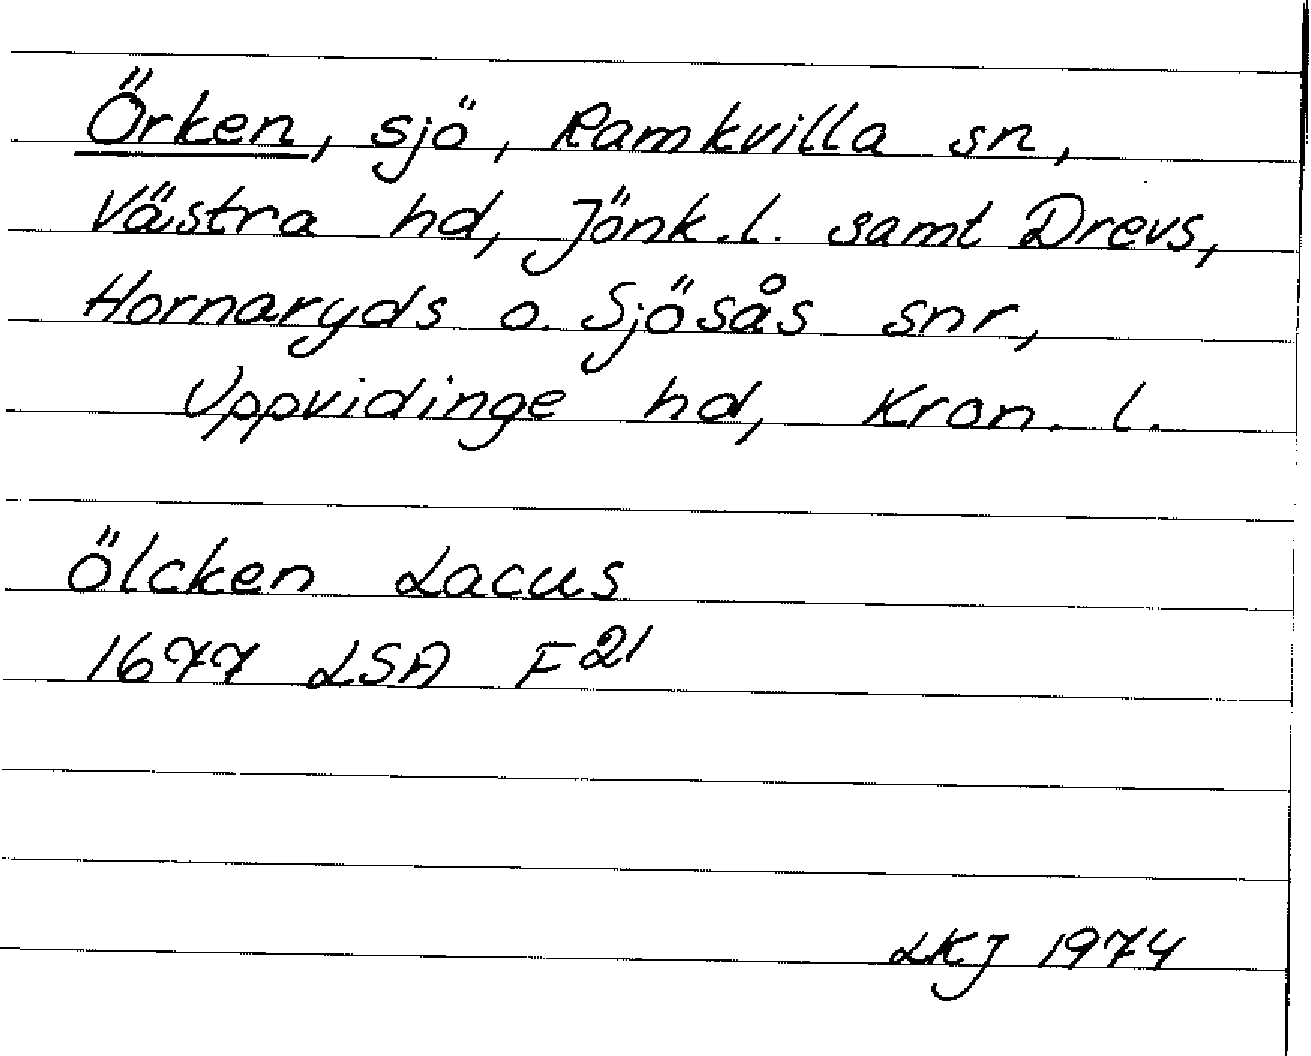 Örken, sjö, Ramkvilla sn,
Västra hd, Jönk.l. samt Drevs,
Hornaryds o. Sjösås snr,
Uppvidinge hd, Kron. l.
Ölcken Lacus
1677 LSA F21
LKJ 1974